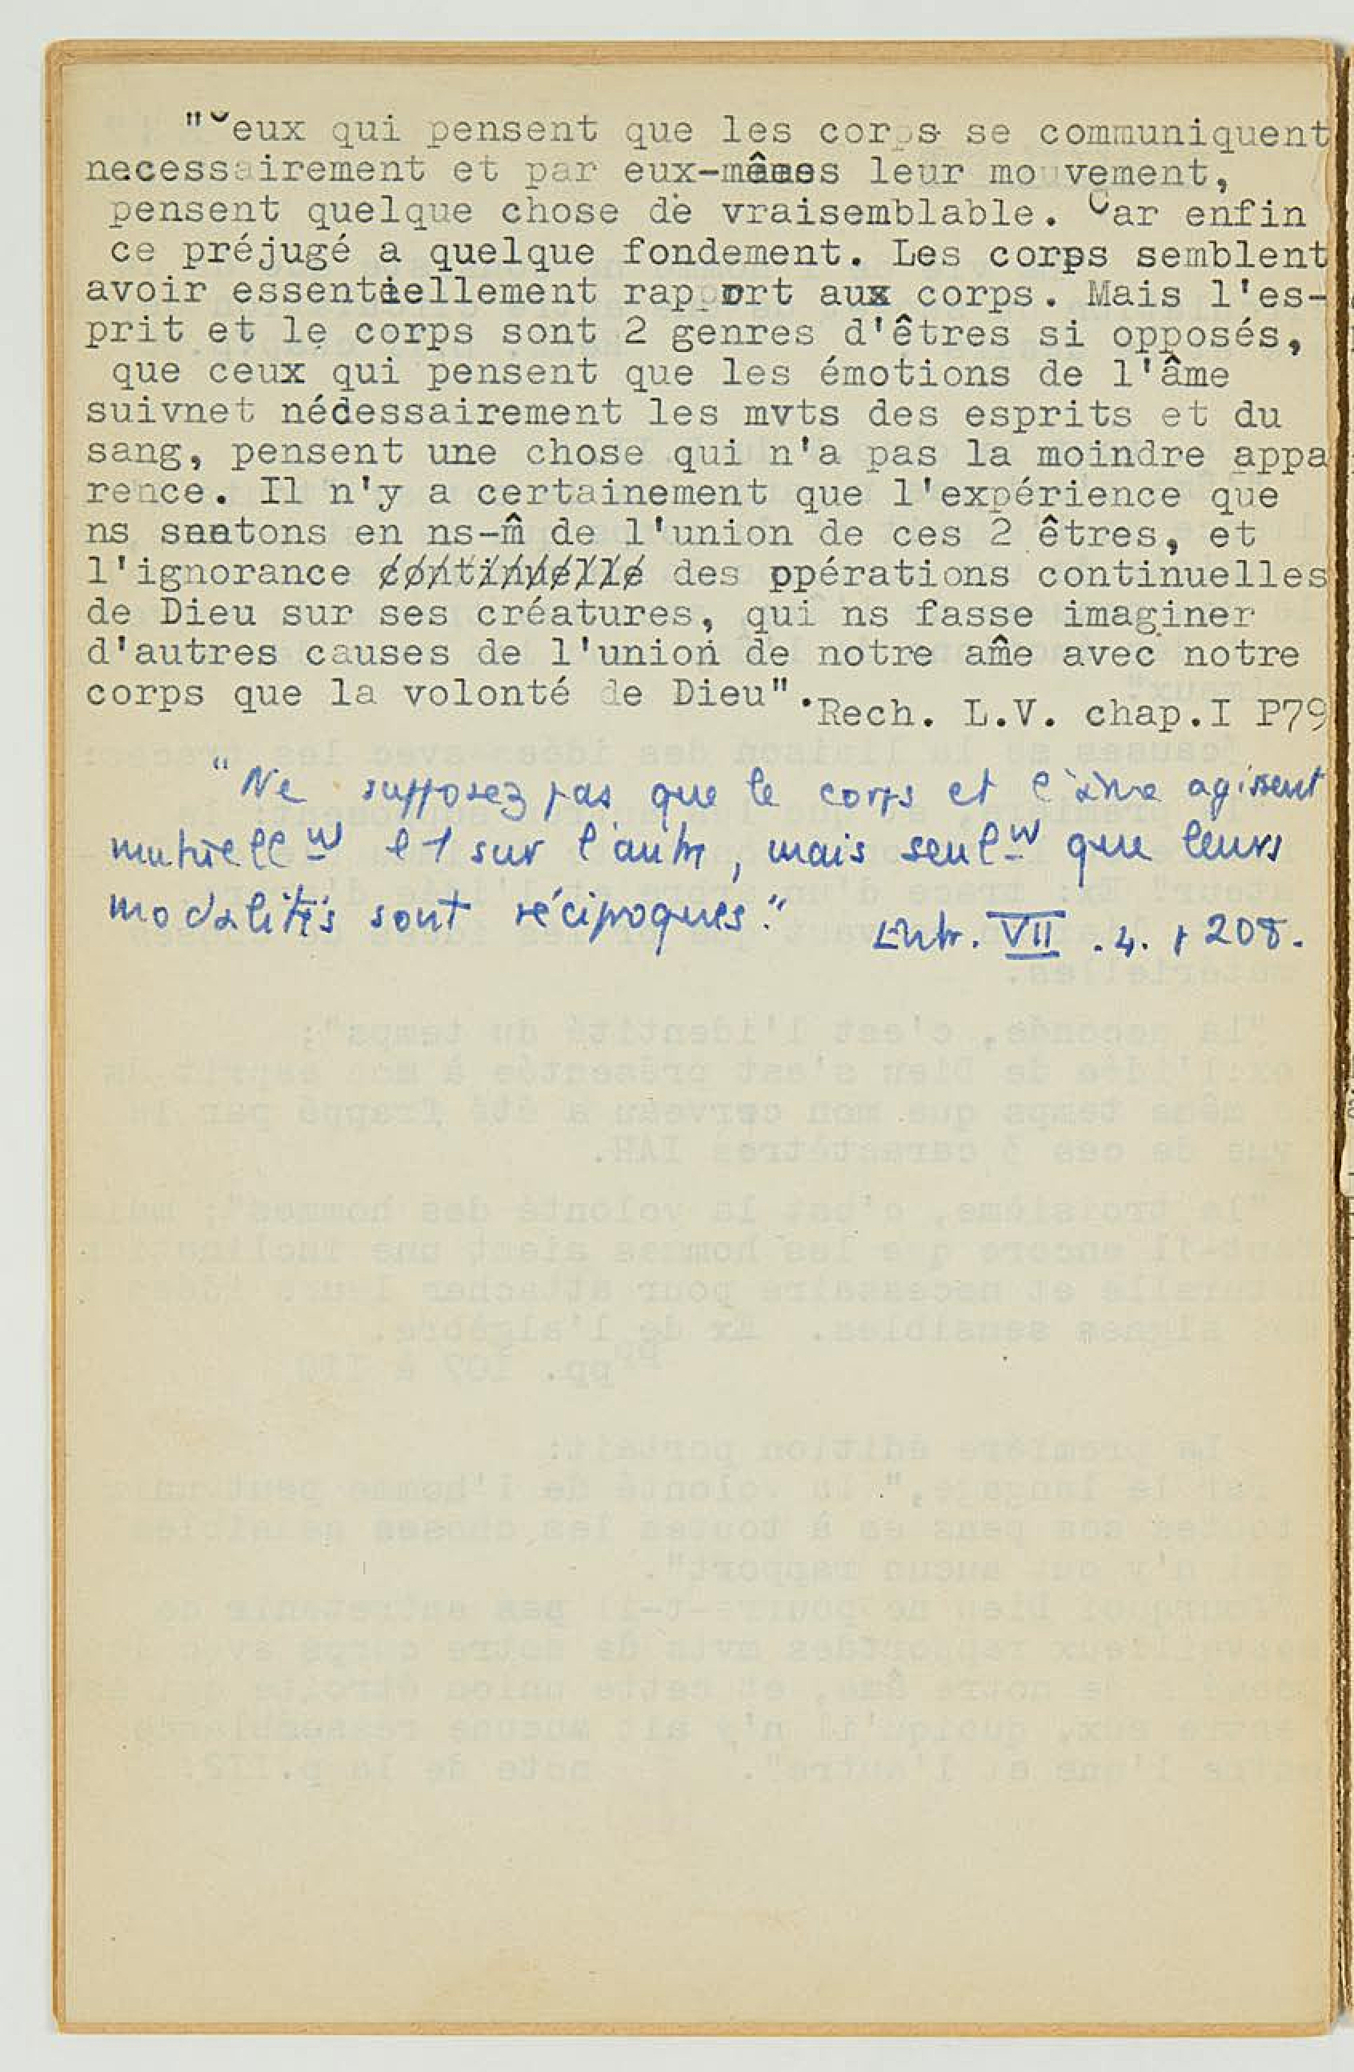 "Ceux qui pensent que les corps se communiquent
necessairement et par eux-mêmes leur mouvement,
pensent quelque chose de vraisemblable. Car enfin
ce préjugé a quelque fondement. Les corps semblent
avoir essentiellement rapport aux corps. Mais l'es-
prit et le corps sont 2 genres d'êtres si opposés,
que ceux qui pensent que les émotions de l'âme
suivnet nécessairement les mvts des esprits et du
sang, pensent une chose qui n'a pas la moindre appa
rence. Il n'y a certainement que l'expérience que
ns sentons en ns-m̂ de l'union de ces 2 êtres, et
l'ignorance continuelle des opérations continuelles
de Dieu sur ses créatures, qui ns fasse imaginer
d'autres causes de l'union de notre ame avec notre
corps que la volonté de Dieu".Rech. L.V. chap.I P79
"Ne supposez pas que le corps et l'âme agissent
mutuellemt l'1 sur l'autre, mais seulemt que leurs
modalités sont réciproques." Entr. VII .4. p 208.